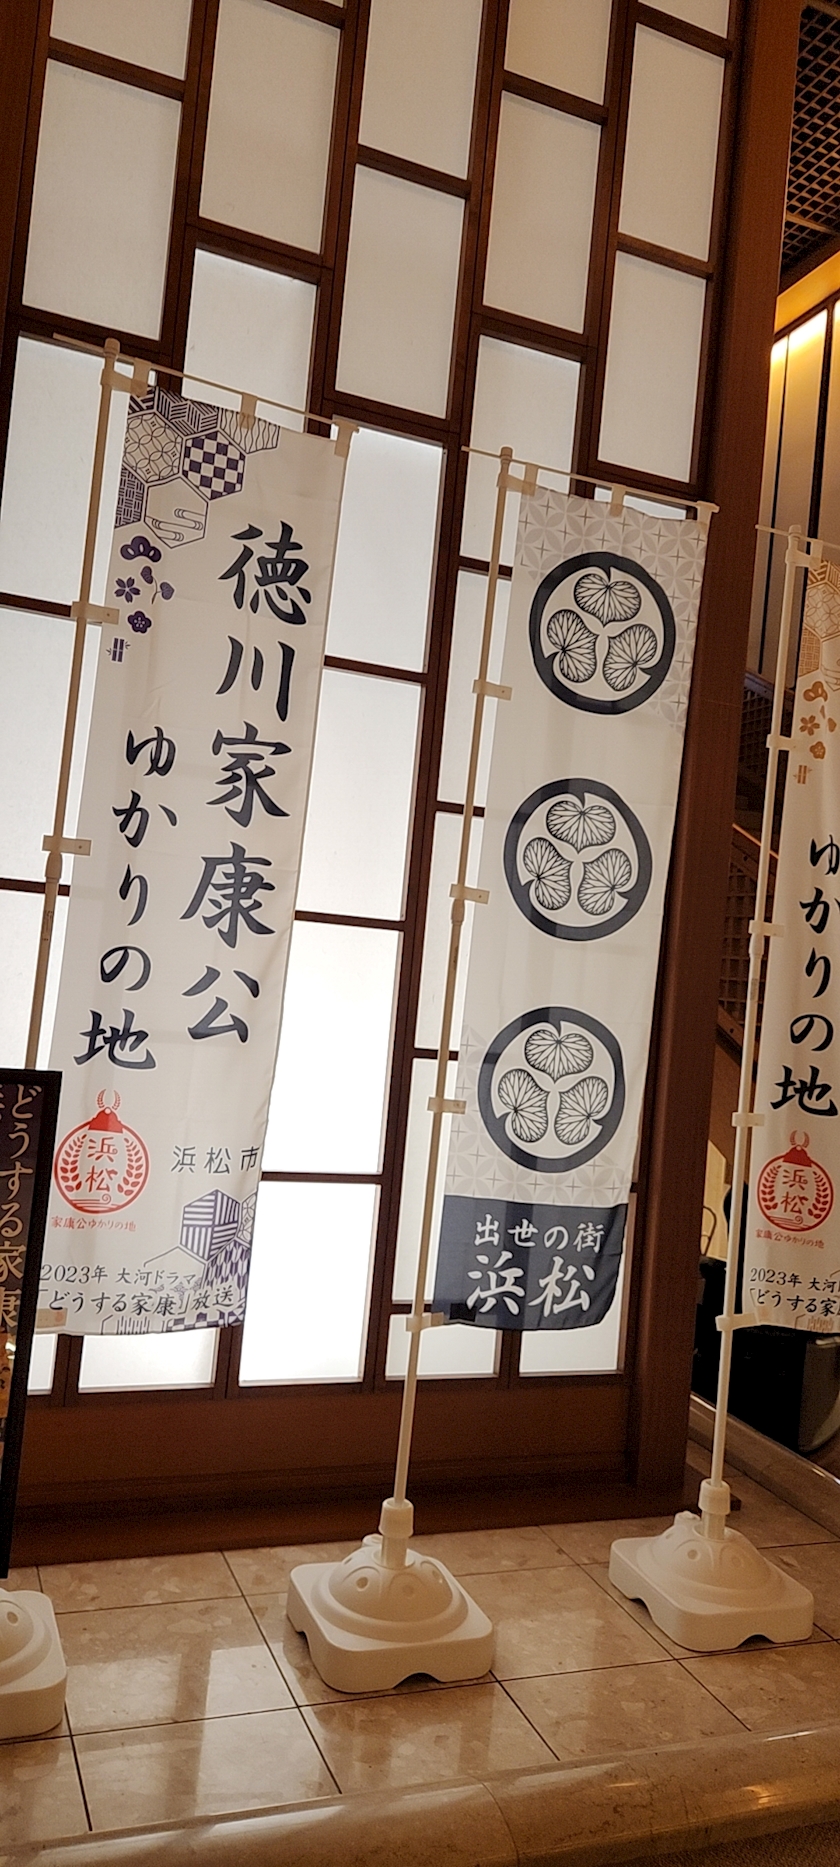 徳川家康公
ゆかりの地
浜松
家康公ゆかりの地
浜松市
2023年 大河ドラマ
「どうする家康」放送
出世の街
浜松
ゆかりの地
浜松
家康公ゆかりの地
2023年 大河
「どうする家
どうする家康